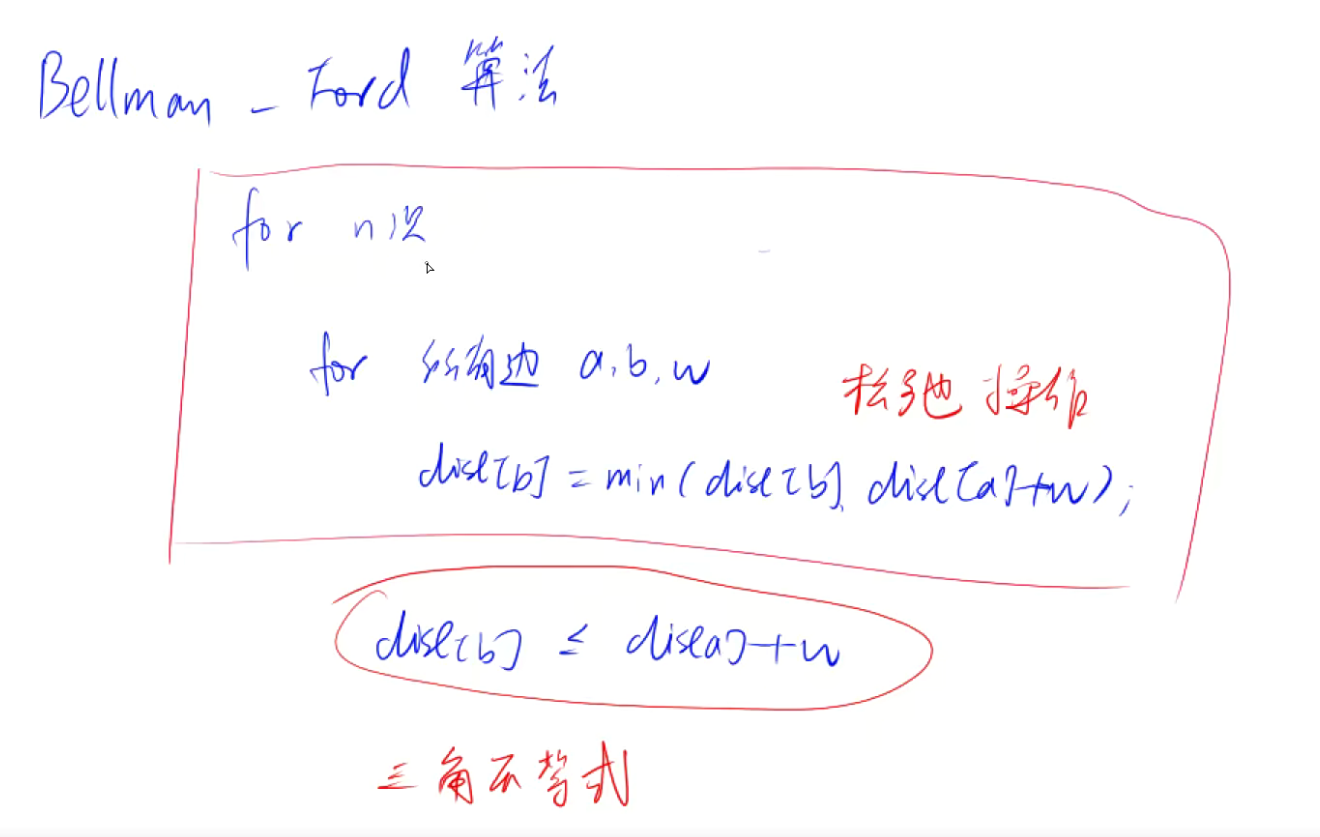 Bellman - Ford 算法
for n次
for 所有边 a,b,w
松弛操作
dist[b] = min(dist[b], dist[a]+w);
dist[b] ≤ dist[a]+w
三角不等式